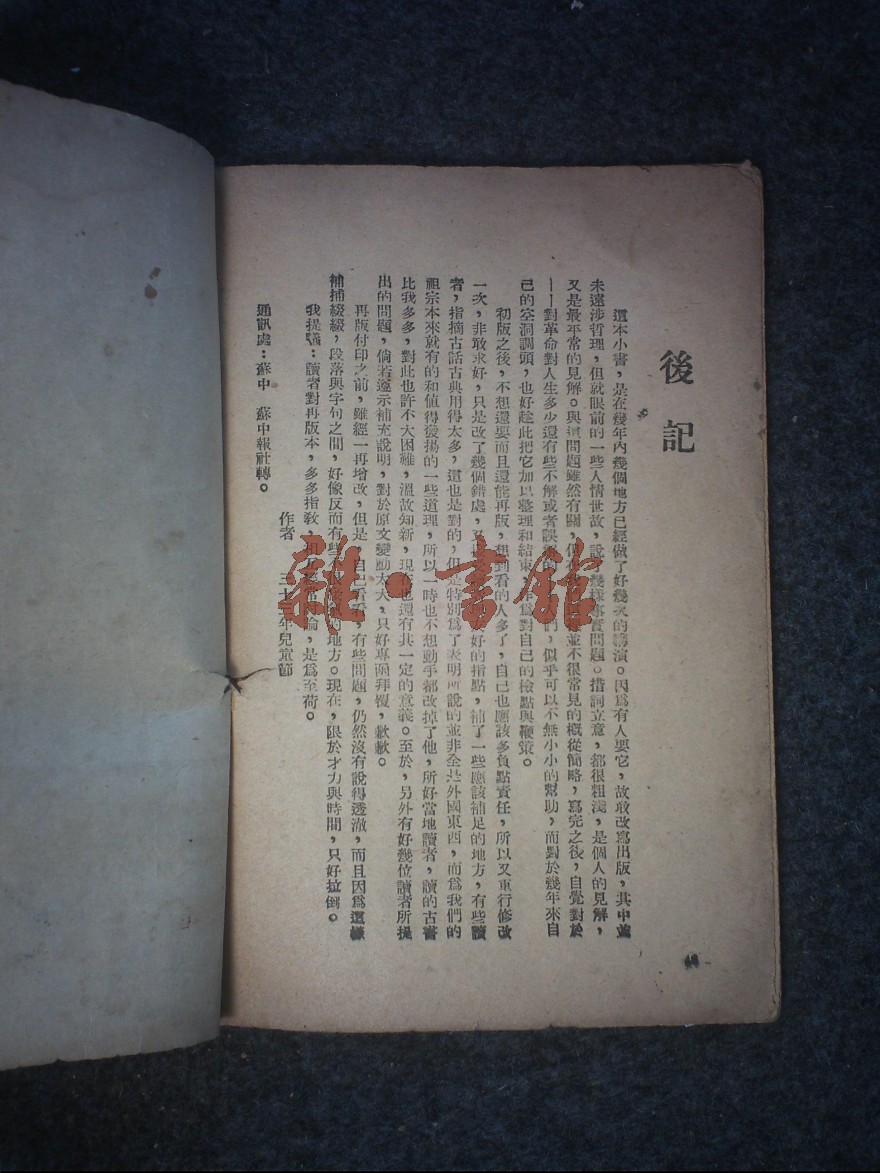 後記
這本小書，是在幾年內幾個地方已經做了好幾次的講演。因爲有人要它，故敢改寫出版，其中並
未遠涉哲理，但就眼前的一些人情世故，說幾樣事實問題。措詞立意，都很粗淺，是個人的見解，
又是最平常的見解。與這問題雖然有關，並不很常見的概從簡略，寫完之後，自覺對於
——對革命對人生多少還有些不解或者誤們，似乎可以不無小小的幫助，而對於幾年來自
己的空洞調頭，也好趁此把它加以整理和結束，爲對自己的檢點與鞭策。
初版之後，不想還要而且還能再版，想到看的人多了，自己也應該多負點責任，所以又重行修改
一次，非敢求好，只是改了幾個錯處，又好的指點，補了一些應該補足的地方，有些讀
者，指摘古話古典用得太多，這也是對的，但是特別爲了表明所說的並非全是外國東西，而爲我們的
祖宗本來就有的和值得發揚的一些道理，所以一時也不想動手都改掉了他，所好當地讀者，讀的古書
比我多多，對此也許不大困難，溫故知新，現在也還有其一定的意義。至於，另外有好幾位讀者所提
出的問題，倘若逐一示補充說明，對於原文變動太大，只好專函拜覆，歉歉。
再版付印之前，雖經一再增改，但是，自己看看，有些問題，仍然沒有說得透澈，而且因爲這樣
補補綴綴，段落與字句之間，好像反而有些的地方。現在，限於才力與時間，只好拉倒。
我提議：讀者對再版本，多多指教，論，是爲至荷。
作者 三十三年兒童節
通訊處：蘇中 蘇中報社轉。
雜·書館